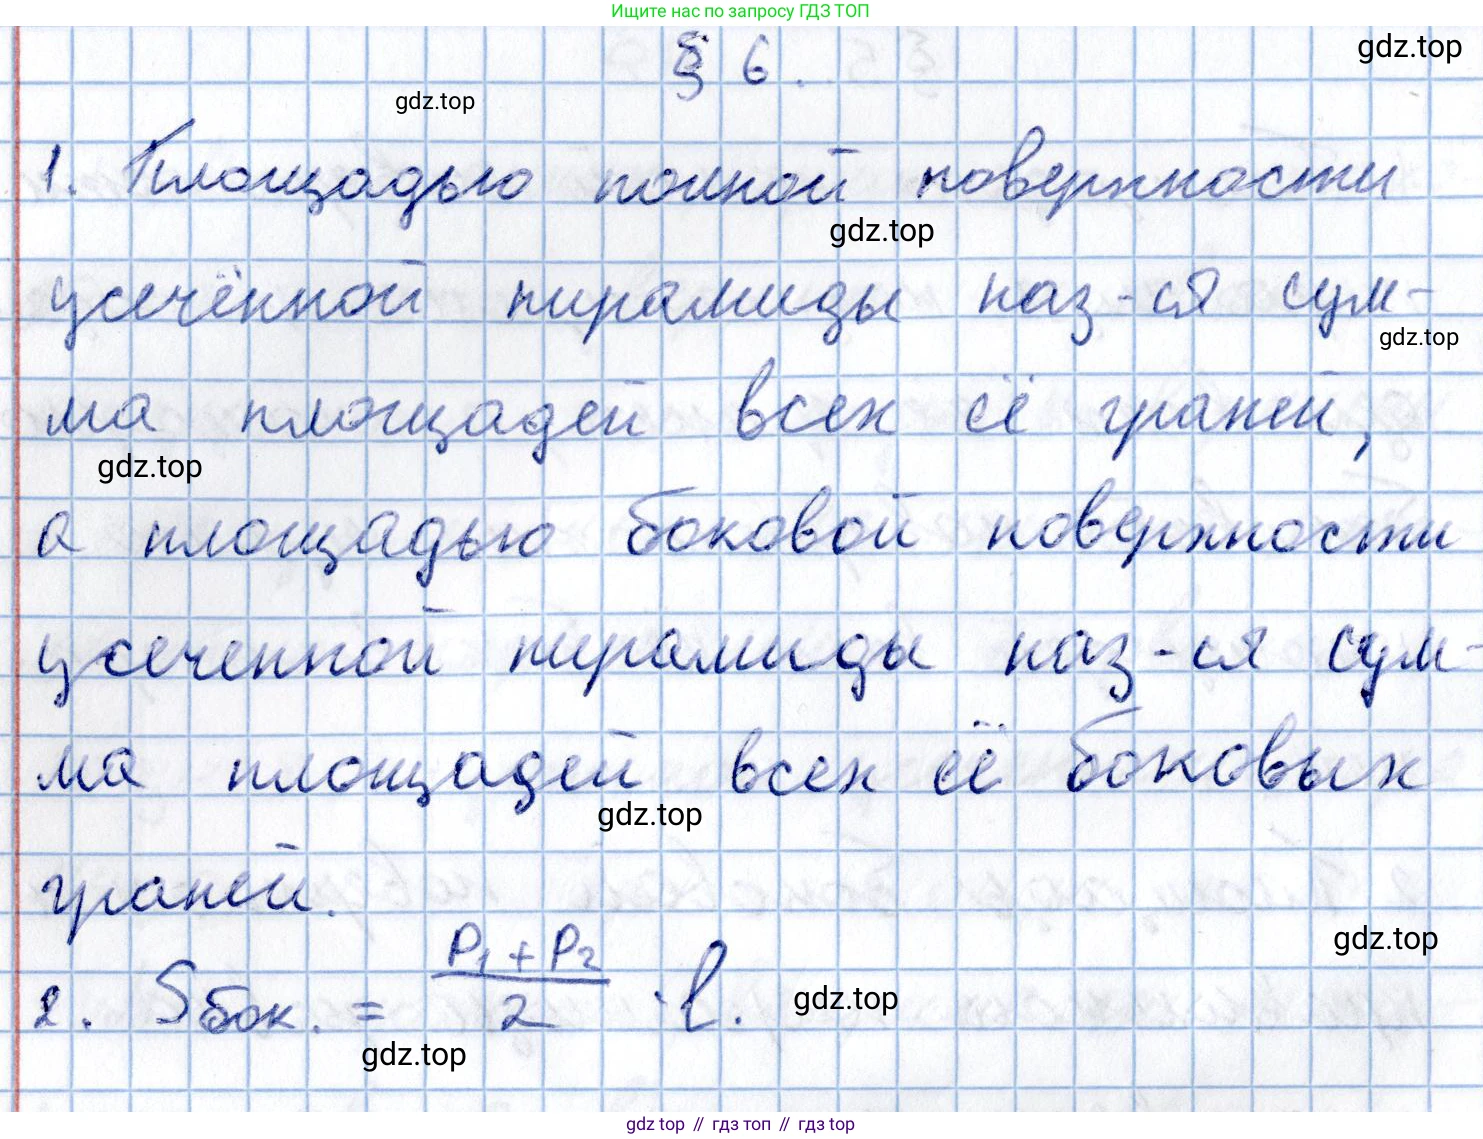 Ищите нас по запросу ГДЗ ТОП
§ 6.
gdz.top
gdz.top
1. Площадью полной поверхности
gdz.top
усечённой пирамиды наз-ся сум-
gdz.top
ма площадей всех её граней,
gdz.top
а площадью боковой поверхности
усеченной пирамиды наз-ся сум-
ма площадей всех её боковых
gdz.top
граней.
gdz.top
2. Sбок. = (P₁ + P₂)/2 · l.
gdz.top
gdz.top
gdz top // гдз топ // гдз top